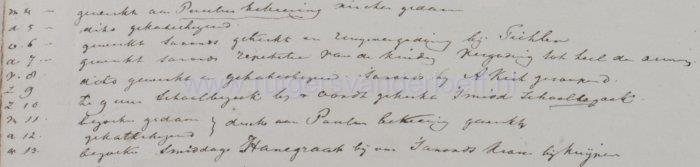 m 4 - gewerkt aan Paulus bekeering
d 5 - dito gekatechiseerd
w 6 - gewerkt savonds gekerkt en ringvergadering bij Tichler
d 7 - gewerkt savonds repetitie van de kinder Vergadering tot heil de armen
v. 8 dito gewerkt en gekatechiseerd Savonds bij A Kerk
Z 9 te 9 uur Schoolbezoek bij
Z 10 gekerkt Smid Schoolbezoek
m 11. bezoeken gedaan } druk aan Paulus bekeering gewerkt
d 12. gekatechiseerd
w 13. bezoeken Smiddags Hanegraaf bij ons Savonds Krans bij Kuijper